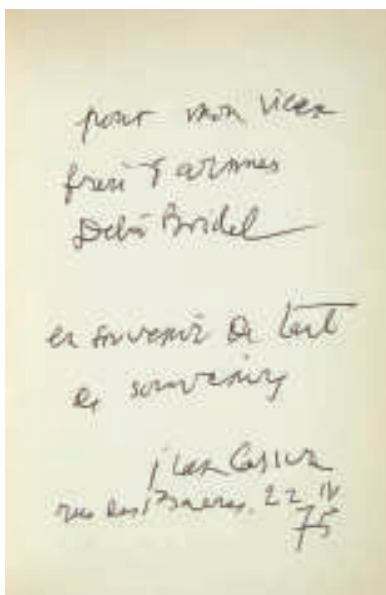 pour mon vieux
frère d'armes
Debû Bridel
en souvenir de tant
de souvenirs
Jean Cassou
rue des 22 IV
75